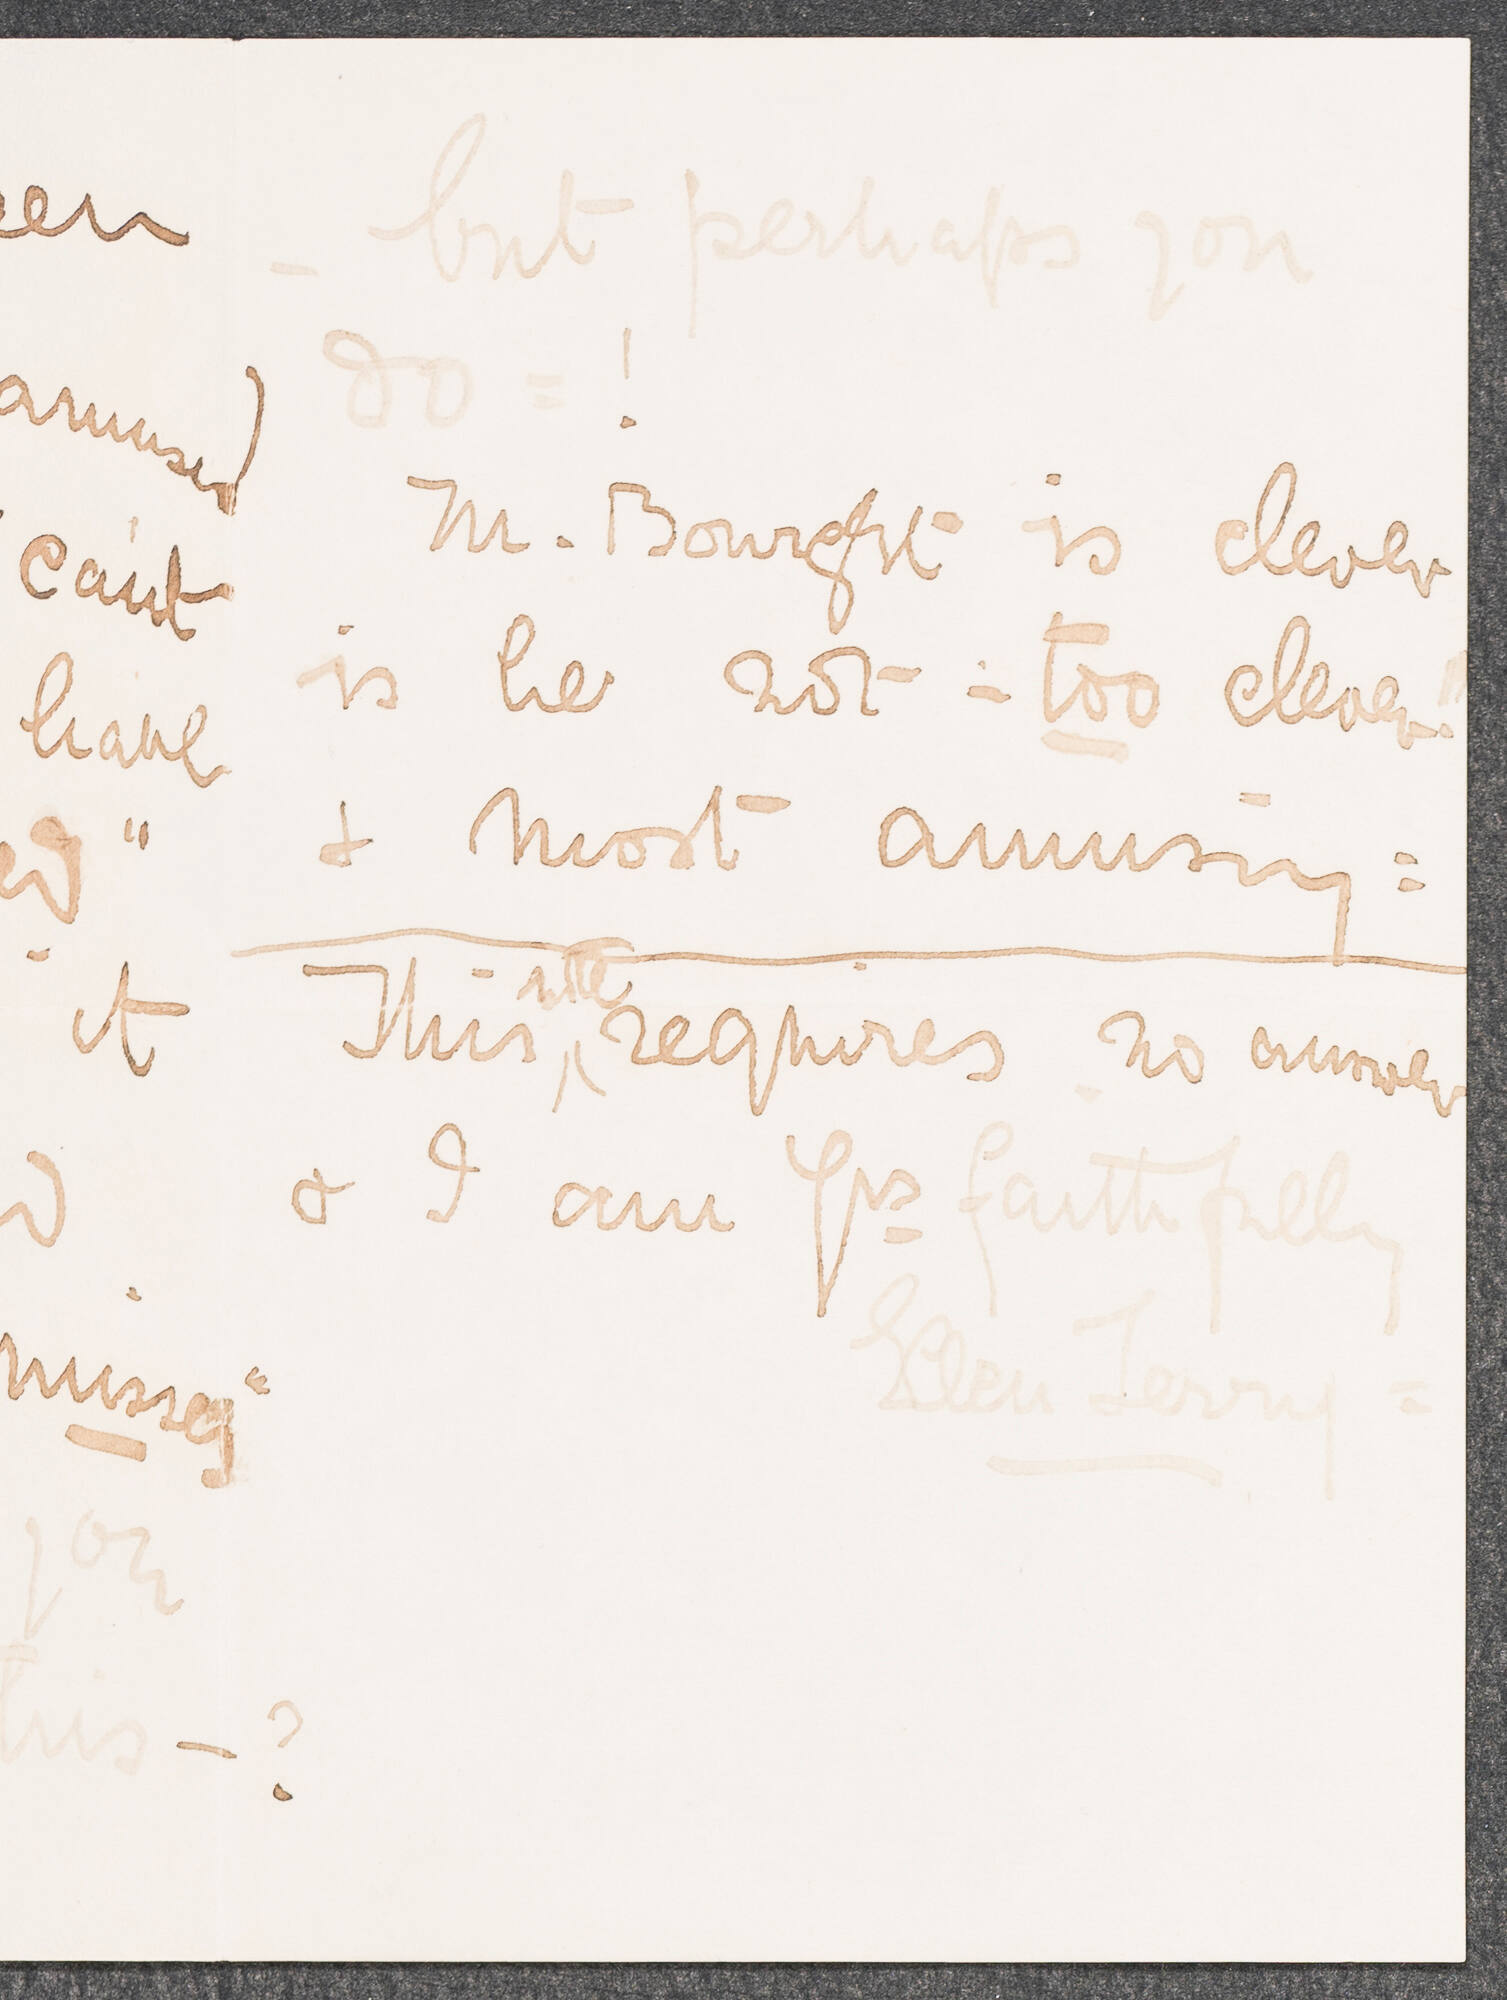 een
amused)
can't
have
ed"
it
missey"
you
this - ?
- but perhaps you
do = !
M. Bourget is clever
is he not = too clever!!
& most amusing =
This note requires no answer
& I am Yrs faithfully
Ellen Terry =